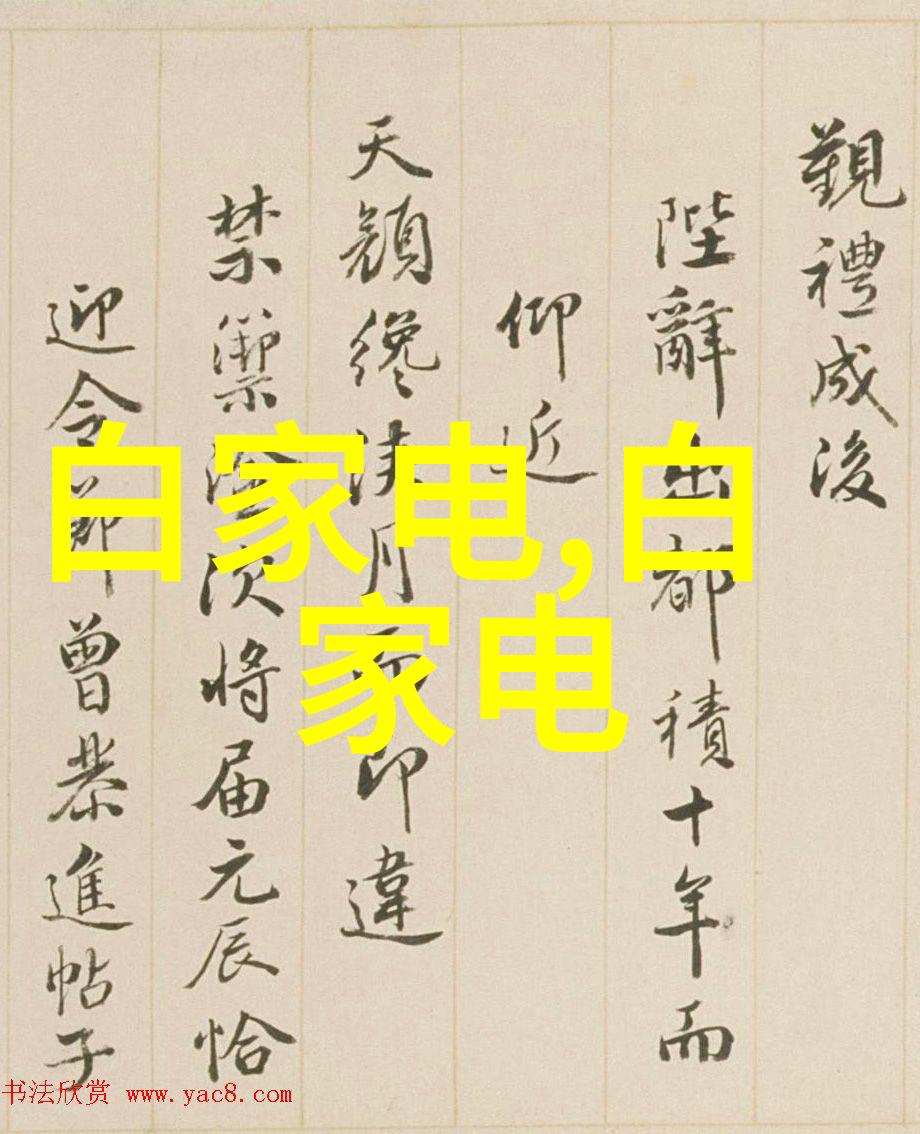 覲禮成後
陛辭出都積十年而
仰近
天顏纔浹月而即違
禁禦次將届元辰恰
迎令節曾恭進帖子
白家电,白
家电
书法欣赏 www.yac8.com